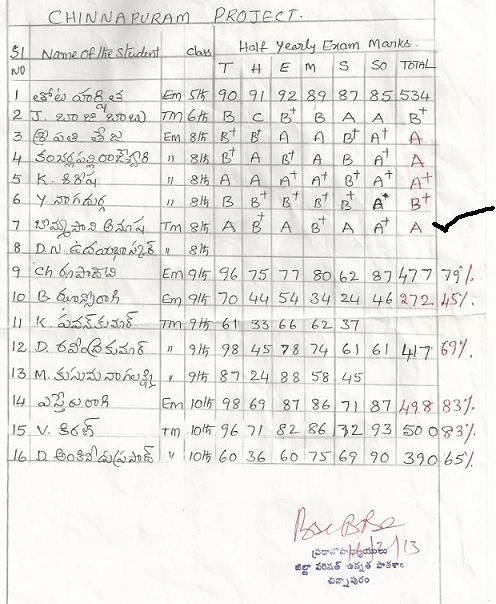 CHINNAPURAM PROJECT.
Sl NO Name of the Student class Half Yearly Exam Marks.
T H E M S So TOTAL
1 తోట హర్షిత Em 5th 90 91 92 89 87 85 534
2 J. బాజి బాబు TM 6th B C B+ B A A B+
3 శ్రీపతి తేజ Em 8th B+ B+ A A B+ A+ A
4 " 8th B+ A B+ A B A+ A
5 K. శిరీష " 8th A A A+ A B+ A+ A+
6 Y నాగదుర్గ " 8th B B+ B+ B+ B+ A+ B+
7 అనూష TM 8th A B+ A B+ A A+ A
8 D.N. ఉదయభాస్కర్ " 8th
9 Ch రూపాదేవి Em 9th 96 75 77 80 62 87 477 79%
10 B. ఝాన్సీరాణి Em 9th 70 44 54 34 24 46 272 45%
11 K. పవన్ కుమార్ TM 9th 61 33 66 62 37
12 D. రవీంద్రకుమార్ " 9th 98 45 78 74 61 61 417 69%
13 M. కుసుమ నాగలక్ష్మి " 9th 87 24 88 58 45
14 ఎస్తేరురాణి Em 10th 98 69 87 86 71 87 498 83%
15 V. కిరణ్ TM 10th 96 71 82 86 72 93 500 83%
16 D. అంకినీడుప్రసాద్ " 10th 60 36 60 75 69 90 390 65%
ప్రధానోపాధ్యాయులు
జిల్లా పరిషత్ ఉన్నత పాఠశాల
చిన్నాపురం